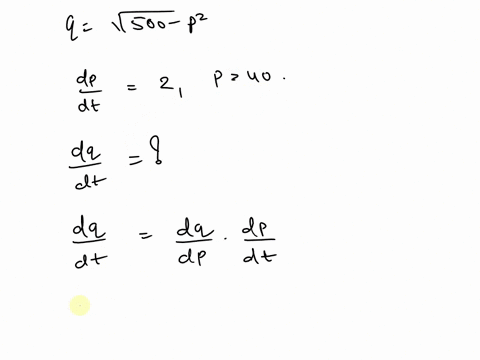 q = √500 - p²
dp/dt = 2, p = 40.
dq/dt = ?
dq/dt = dq/dp · dp/dt